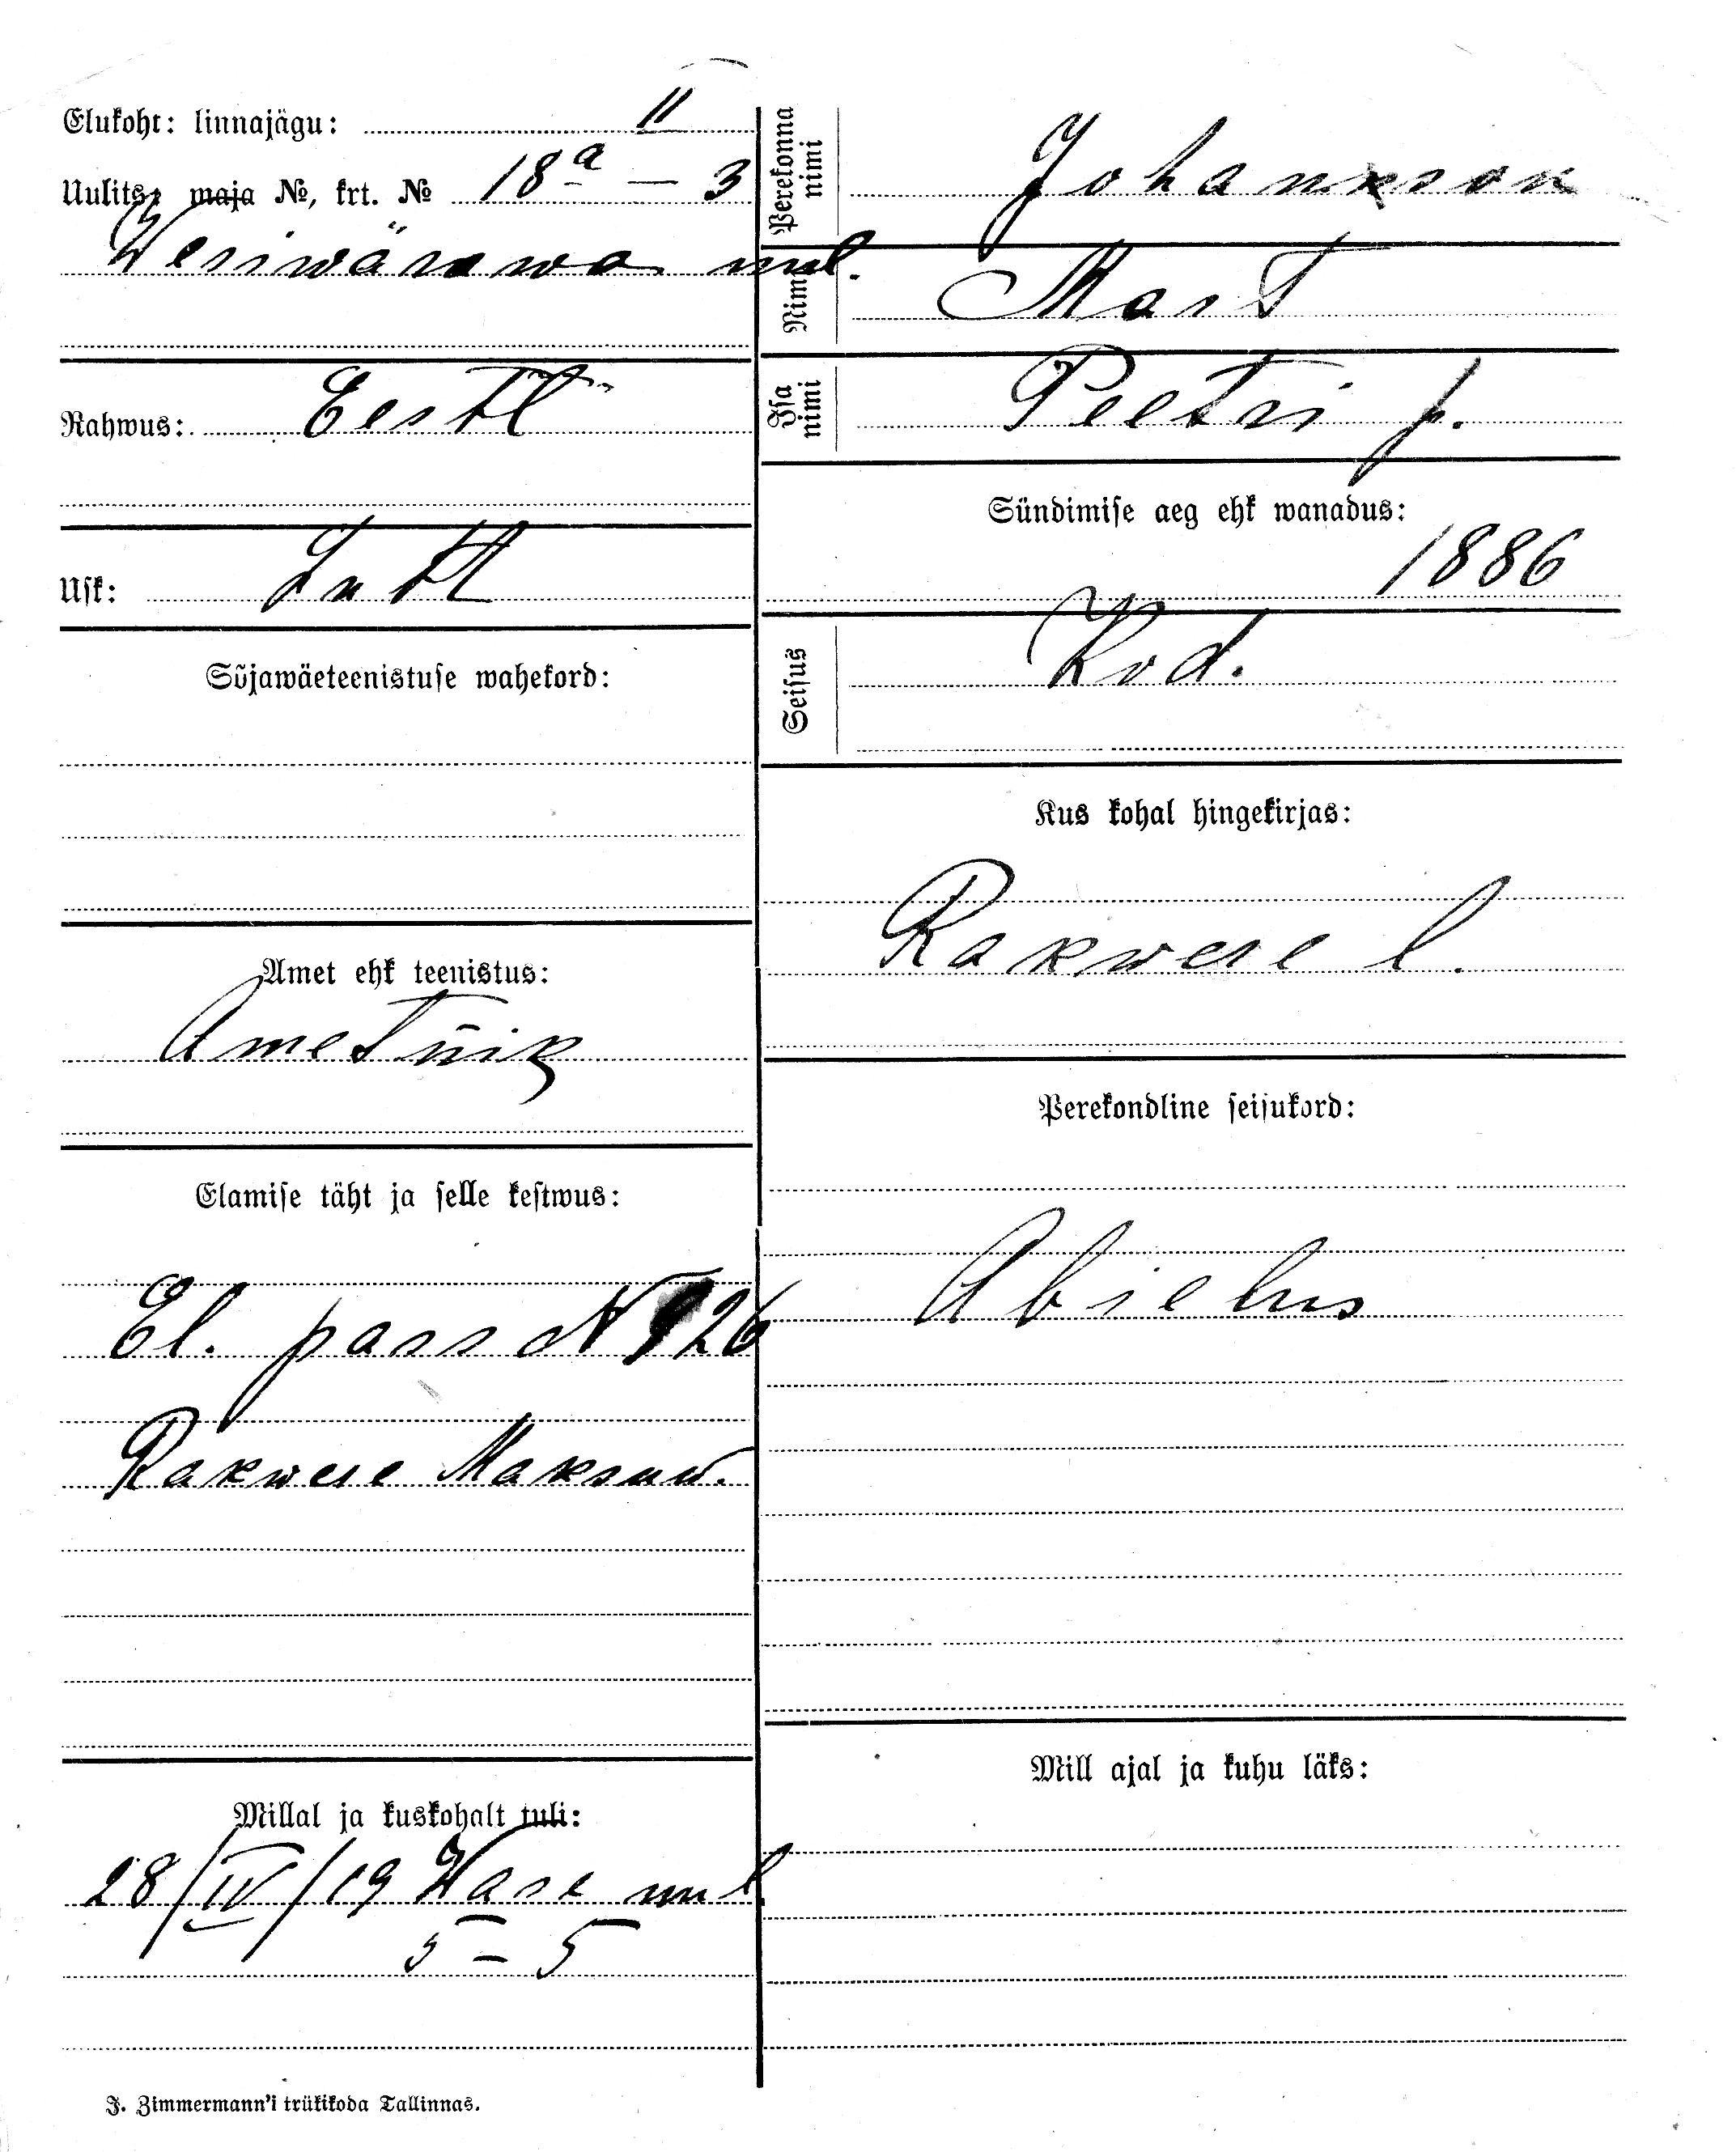 Elukoht: linnajägu: II
Uulits, maja №, krt. № 18ª — 3
Wesiwärawa uul.
Rahwus: Eestl
Usk: Lutl
Sõjawäeteenistuse wahekord:
Amet ehk teenistus:
Ametnik
Elamise täht ja selle kestwus:
El. pass N 926
Rakwere Maksuw.
Millal ja kuskohalt tuli:
28/IV/19 Wase uul.
5 – 5
J. Zimmermann'i trükikoda Tallinnas.
Perekonna nimi Johanson
Nimi Mart
Isa nimi Peetri p.
Sündimise aeg ehk wanadus:
1886
Seisus Kod.
Kus kohal hingekirjas:
Rakwere l.
Perekondline seisukord:
Abielus
Mill ajal ja kuhu läks: